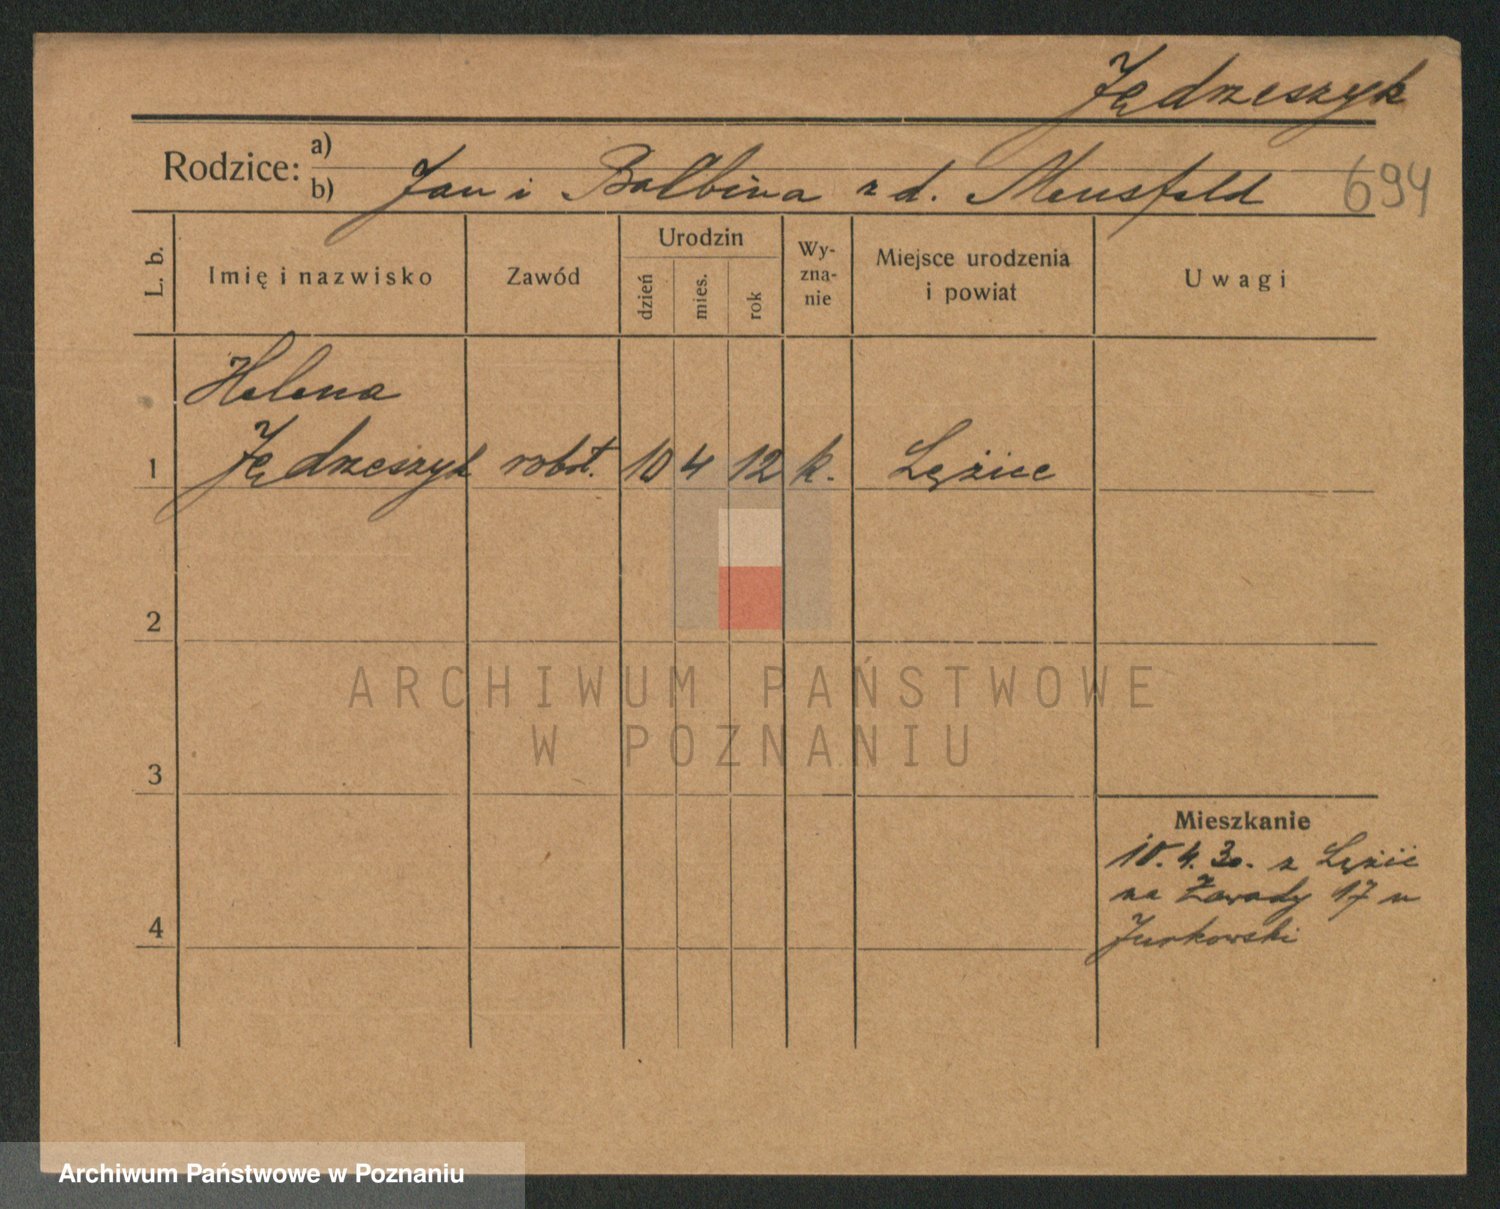 Jędrzeszyk
Rodzice: a)
b) Jan i Balbina z d. Mensfeld 694
L. b. Imię i nazwisko Zawód Urodzin dzień mies. rok Wy-zna-nie Miejsce urodzenia i powiat Uwagi
Helena
1 Jędrzeszyk robot. 10 4 12 k. Lężice
2
ARCHIWUM PAŃSTWOWE
W POZNANIU
3
Mieszkanie
10.4.30. z Lężic
na Zawady 17 u
4 Jurkowski
Archiwum Państwowe w Poznaniu